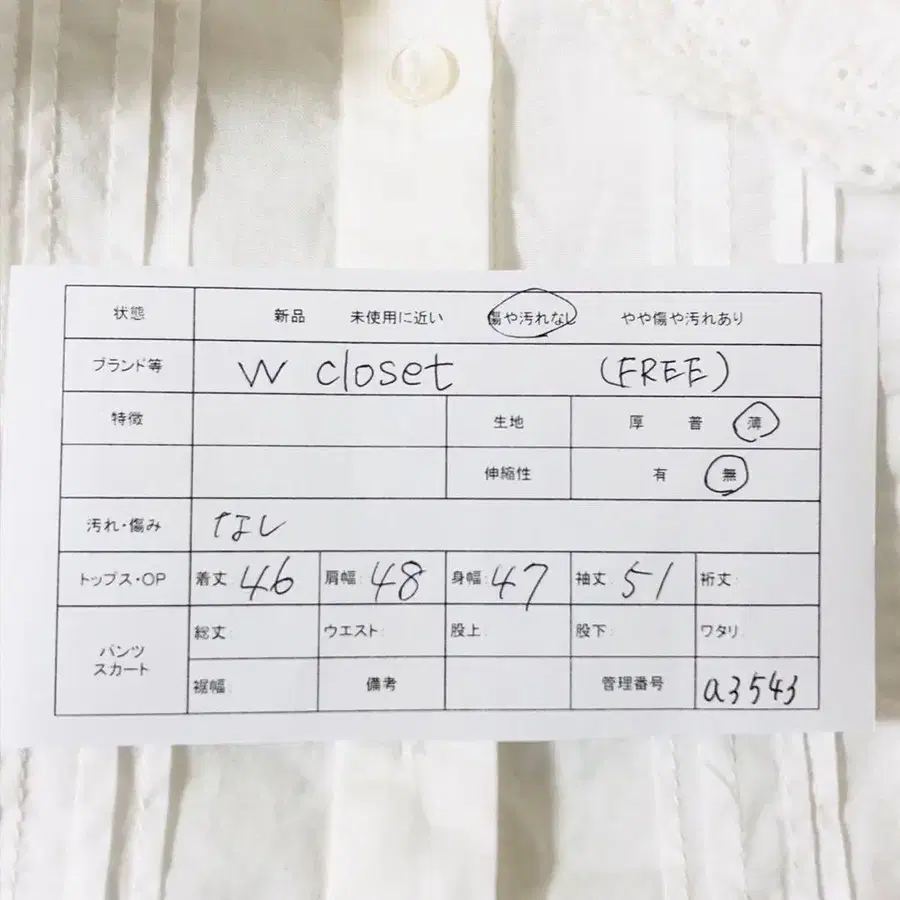 状態 新品 未使用に近い 傷や汚れなし やや傷や汚れあり
ブランド等 w closet (FREE)
特徴 生地 厚 普 薄
伸縮性 有 無
汚れ・傷み なし
トップス・OP 着丈: 46 肩幅: 48 身幅: 47 袖丈: 51 裄丈:
パンツ スカート 総丈: ウエスト: 股上: 股下: ワタリ:
裾幅: 備考 管理番号 a3543